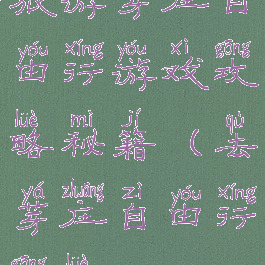 旅游芽庄自
yóu xíng yóu xì gōng
由行游戏攻
lüè mì jí qù
略秘籍（去
yá zhuāng zì yóu xíng
芽庄自由行
gōng lüè